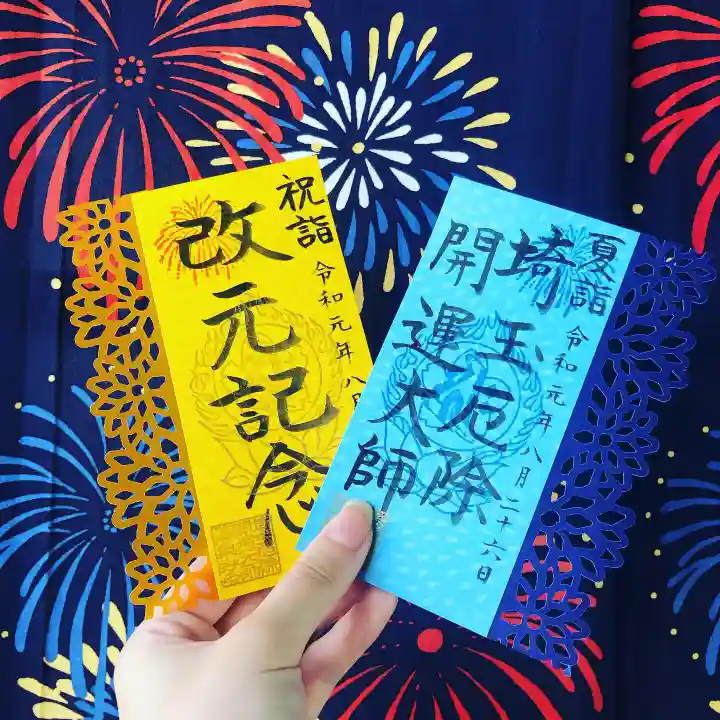 祝詣
改元記念
令和元年八月
夏詣
埼玉厄除
開運大師
令和元年八月二十六日